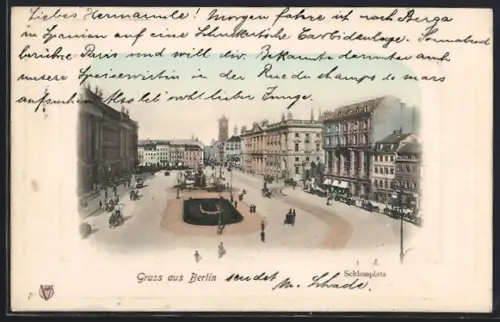 Liebes Hermannle! Morgen fahre ich nach Berga
in Spanien auf eine Schuckertsche Carbidanlage. Sonnabend
berühre Paris und will div. Bekannte darunter auch
unsere Speisewirtin in der Rue des champs de mars
aufsuchen. Also leb' wohl lieber Junge.
Gruss aus Berlin sendet M. Schade.
Schlossplatz